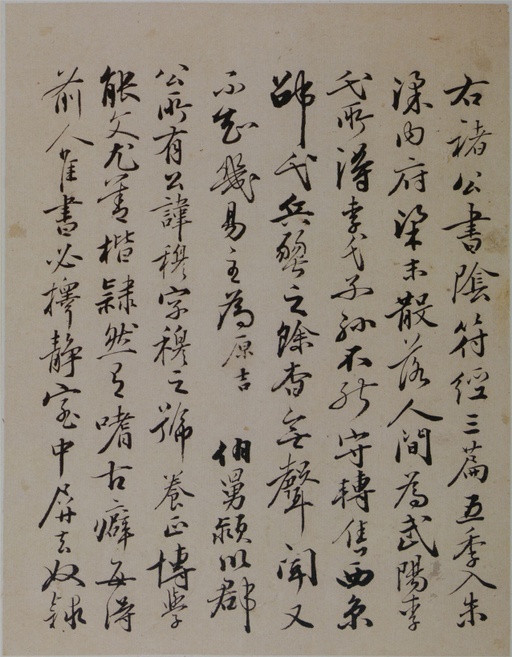 右褚公書陰符經三篇五季入朱
梁内府梁末散落人間為武陽李
氏所得李氏子孫不能守轉售西京
邵氏兵燹之餘杳無聲聞又
不知幾易主為原吉 伯舅潁川郡
公所有公諱穆字穆之號養正博學
能文尤善楷隸然有嗜古癖每得
前人隹書必擇静室中屏去奴隸